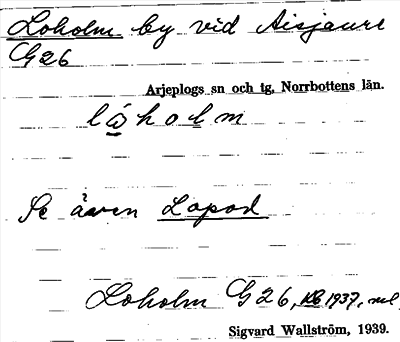 Loholm by vid Aisjaure
G26
Arjeplogs sn och tg, Norrbottens län.
låholm
Se även Lapod
Loholm G26, KB 1937,
Sigvard Wallström, 1939.